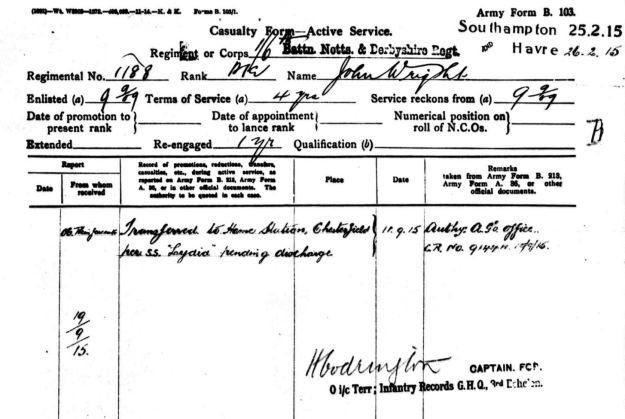 Army Form B. 103.
Casualty Form—Active Service.
Southampton 25.2.15
Havre 26.2.15
Regiment or Corps 1/6th Battn. Notts. & Derbyshire Regt.
Regimental No. 1188 Rank Name John Wright
Enlisted (a) 9 9/09 Terms of Service (a) 4 yrs Service reckons from (a) 9 9/09
Date of promotion to present rank Date of appointment to lance rank Numerical position on roll of N.C.Os.
Extended Re-engaged 1 yr Qualification (b)
Report
Date
From whom received
Record of promotions, reductions, transfers, casualties, etc., during active service, as reported on Army Form B. 213, Army Form A. 36, or in other official documents. The authority to be quoted in each case.
Place
Date
Remarks
taken from Army Form B. 213, Army Form A. 36, or other official documents.
Transferred to Home Station, Chesterfield
per S.S. "Lydia" pending discharge
11.9.15
Authy: A.G's office.
C.R. No.
19
9
15.
H Codrington
CAPTAIN. FOR.
O i/c Terr; Infantry Records G.H.Q., 3rd Echelon.